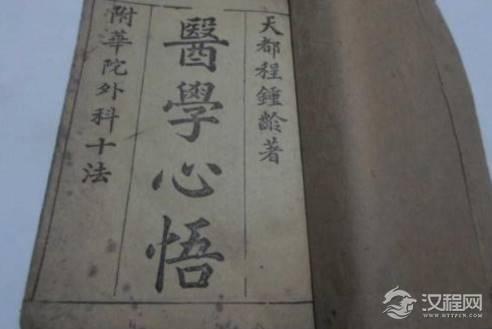 天都程鍾齡著
醫學心悟
附華陀外科十法
汉程网
HTTPCN.COM